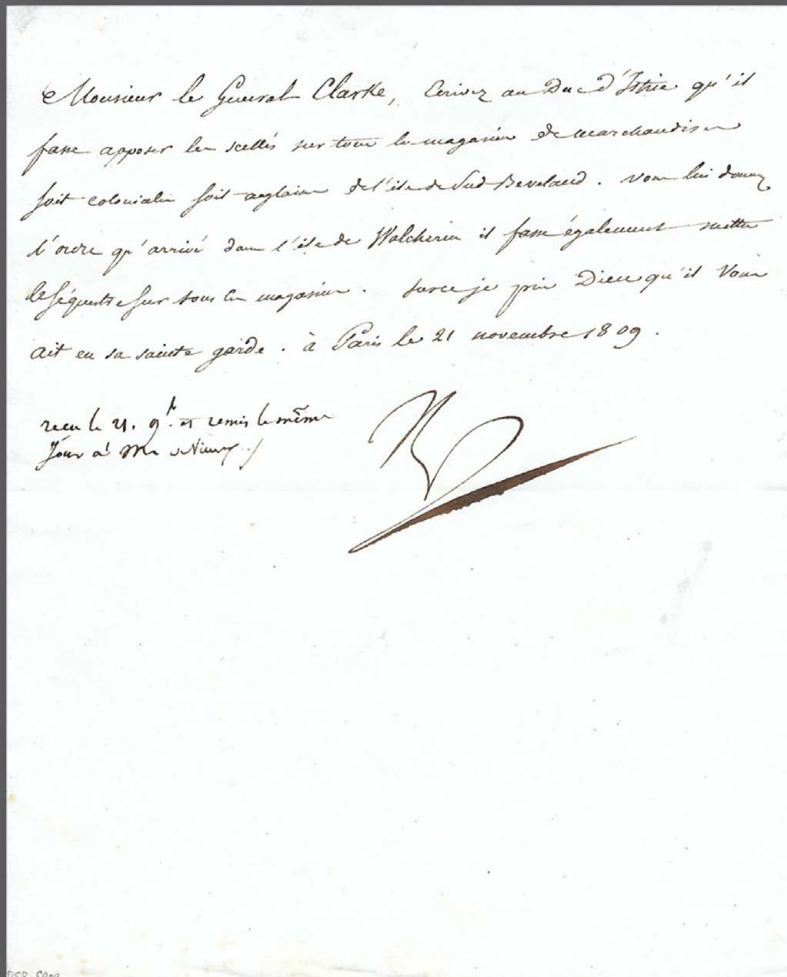 Monsieur le General Clarke, Ecrivez au Duc d'Istrie qu'il
fasse apposer les scellés sur tous les magasins de marchandises
soit coloniales soit anglaises de l'ile de Sud Beveland. vous lui donnerez
l'ordre qu'arrivé dans l'ile de Walcheren il fasse également mettre
le séquestre sur tous les magasins. sur ce je prie Dieu qu'il vous
ait en sa sainte garde. à Paris le 21 novembre 1809.
recu le 21. 9.bre et remis le même
Jour à Mr